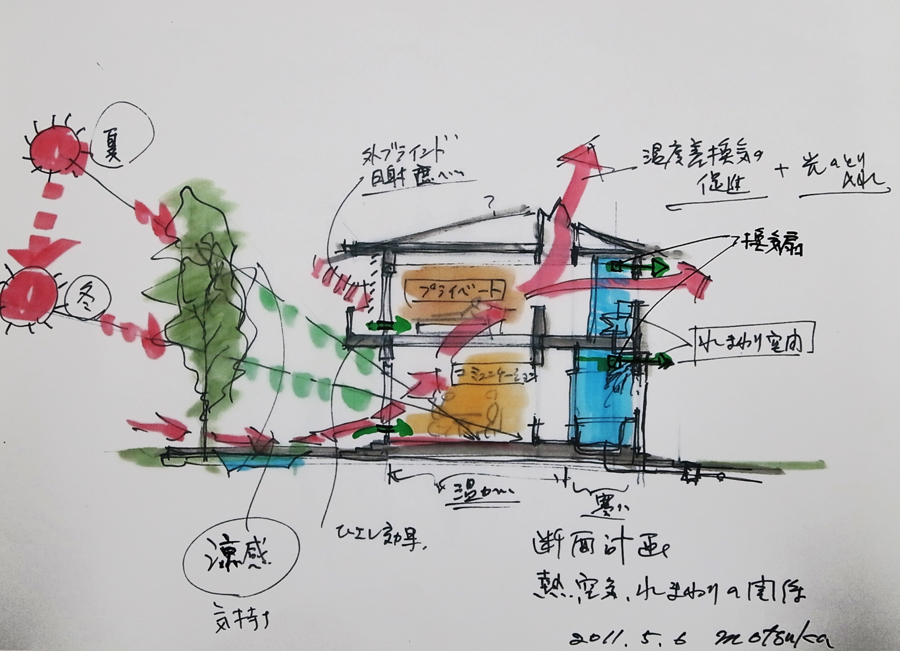 夏
冬
外ブラインド
日射遮へい
?
温度差換気の
促進
+
光のとり
入れ
換気扇
プライベート
コミュニケーション
水まわり空間
温かい
寒い
涼感
気持ち
ひエレ効果.
断面計画
熱、空気、水まわりの関係
2011. 5. 6 motsuka